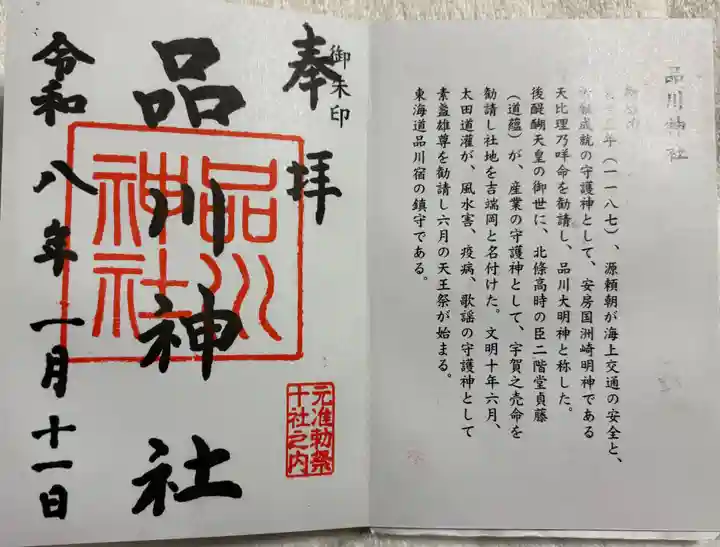 品川神社
年(一一八七)、源頼朝が海上交通の安全と、
成就の守護神として、安房国洲崎明神である
天比理乃咩命を勧請し、品川大明神と称した。
後醍醐天皇の御世に、北條高時の臣二階堂貞藤
(道蘊)が、産業の守護神として、宇賀之売命を
勧請し社地を吉端岡と名付けた。文明十年六月、
太田道灌が、風水害、疫病、歌謡の守護神として
素盞雄尊を勧請し六月の天王祭が始まる。
東海道品川宿の鎮守である。
御朱印
奉拝
品川神社
令和八年一月十一日
品川神社
元准勅祭
十社之内